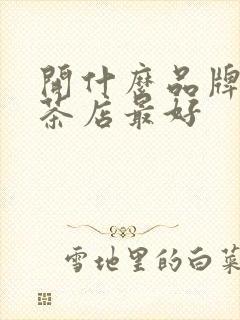 開什麼品牌
茶店最好
雪地里的白菜